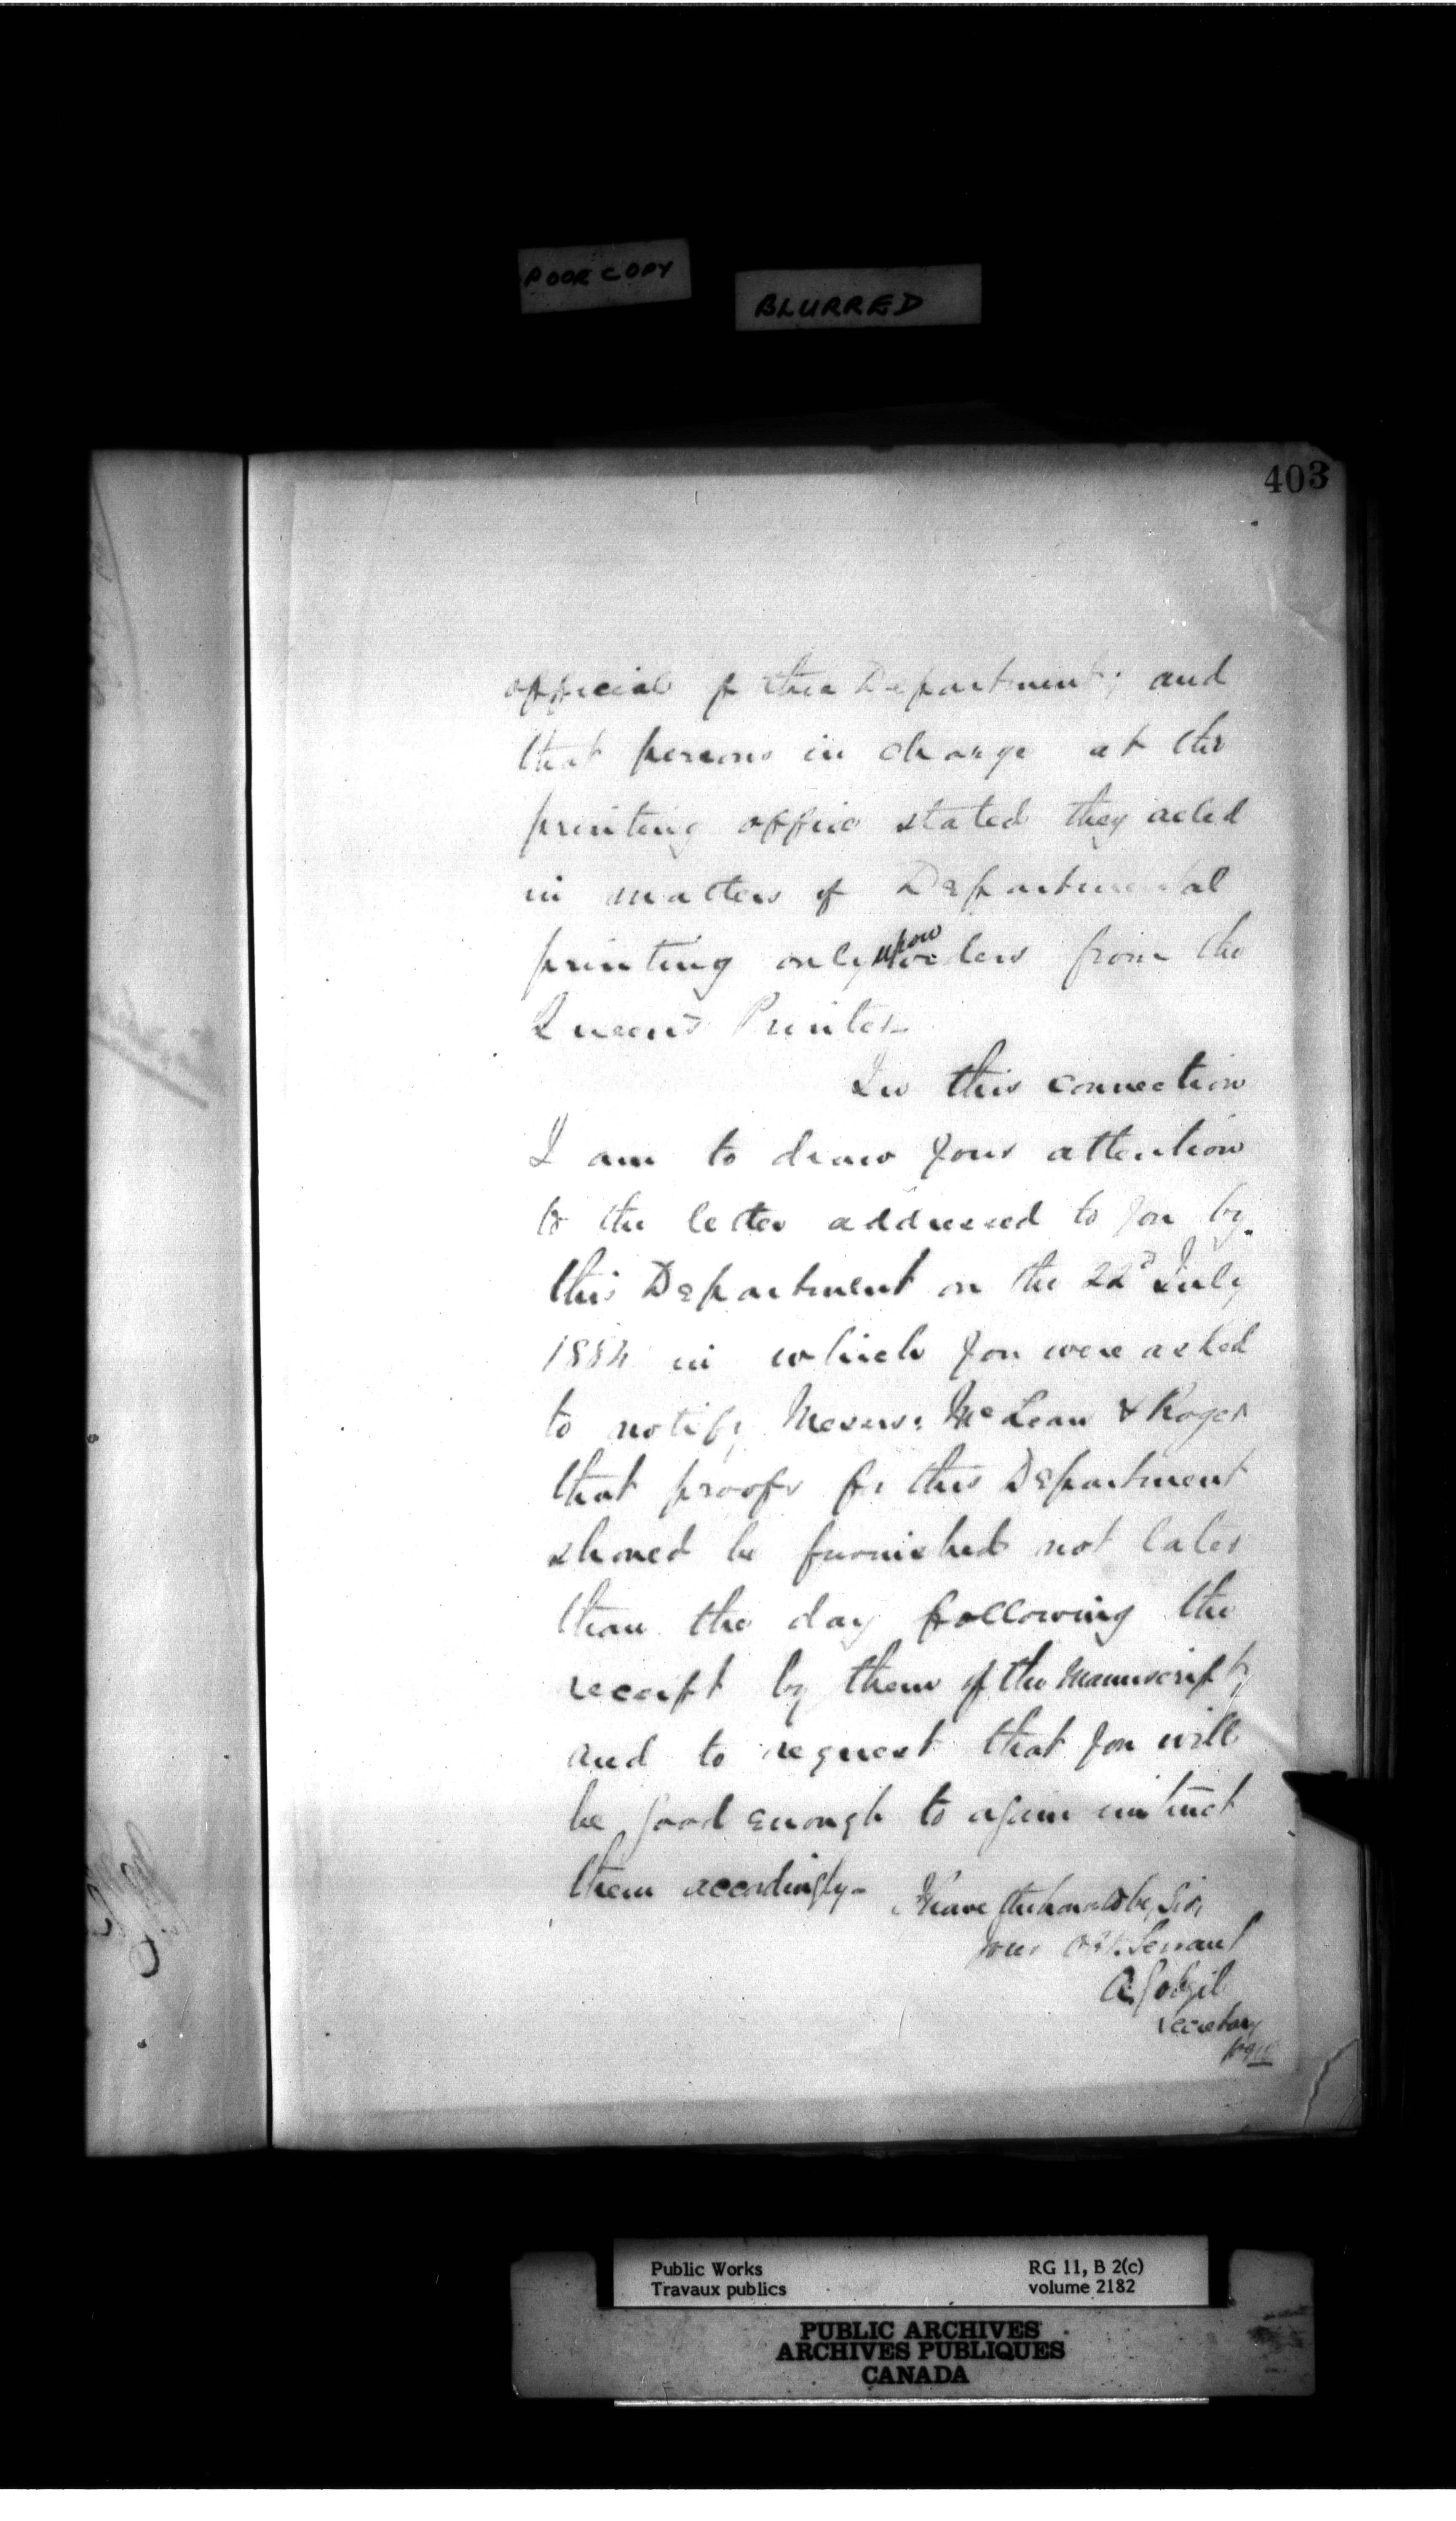 POOR COPY
BLURRED
403
official of this Department; and
that persons in charge at the
printing office stated they acted
in matters of Departmental
printing only upon orders from the
Queen's Printer
In this connection
I am to draw your attention
to the letter addressed to you by
this Department on the 22d July
1884 in which you were asked
to notify Messrs: McLean & Roger
that proofs for this Department
should be furnished not later
than the day following the
receipt by them of the manuscript,
and to request that you will
be good enough to again instruct
them accordingly-
I have the honor to be, Sir,
your Obt. Servant
A Gobeil
Secretary
Public Works RG 11, B 2(c)
Travaux publics volume 2182
PUBLIC ARCHIVES
ARCHIVES PUBLIQUES
CANADA